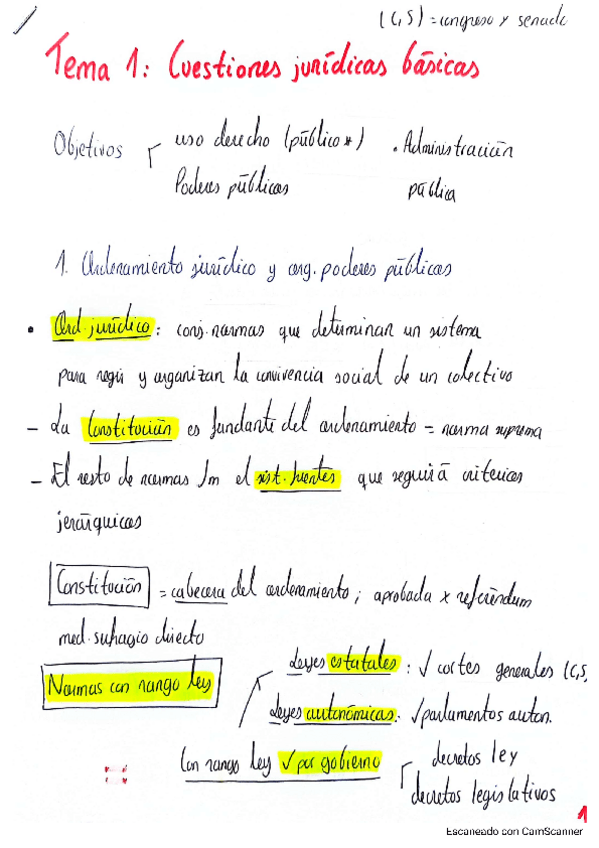 (C,S) = congreso y senado
Tema 1: Cuestiones jurídicas básicas
Objetivos
uso derecho (público*)
Poderes públicos
• Administración
pública
1. Ordenamiento jurídico y org. poderes públicos
• Ord. jurídico: conj. normas que determinan un sistema
para regir y organizan la convivencia social de un colectivo
- La Constitución es fundante del ordenamiento = norma suprema
- El resto de normas fm el sist. fuentes que seguirá criterios
jerárquicos
Constitución = cabecera del ordenamiento; aprobada x referéndum
med. sufragio directo
Normas con rango ley
Leyes estatales: √ cortes generales (C,S)
Leyes autonómicas: √ parlamentos auton.
Con rango ley √ por gobierno
decretos ley
decretos legislativos
1
Escaneado con CamScanner